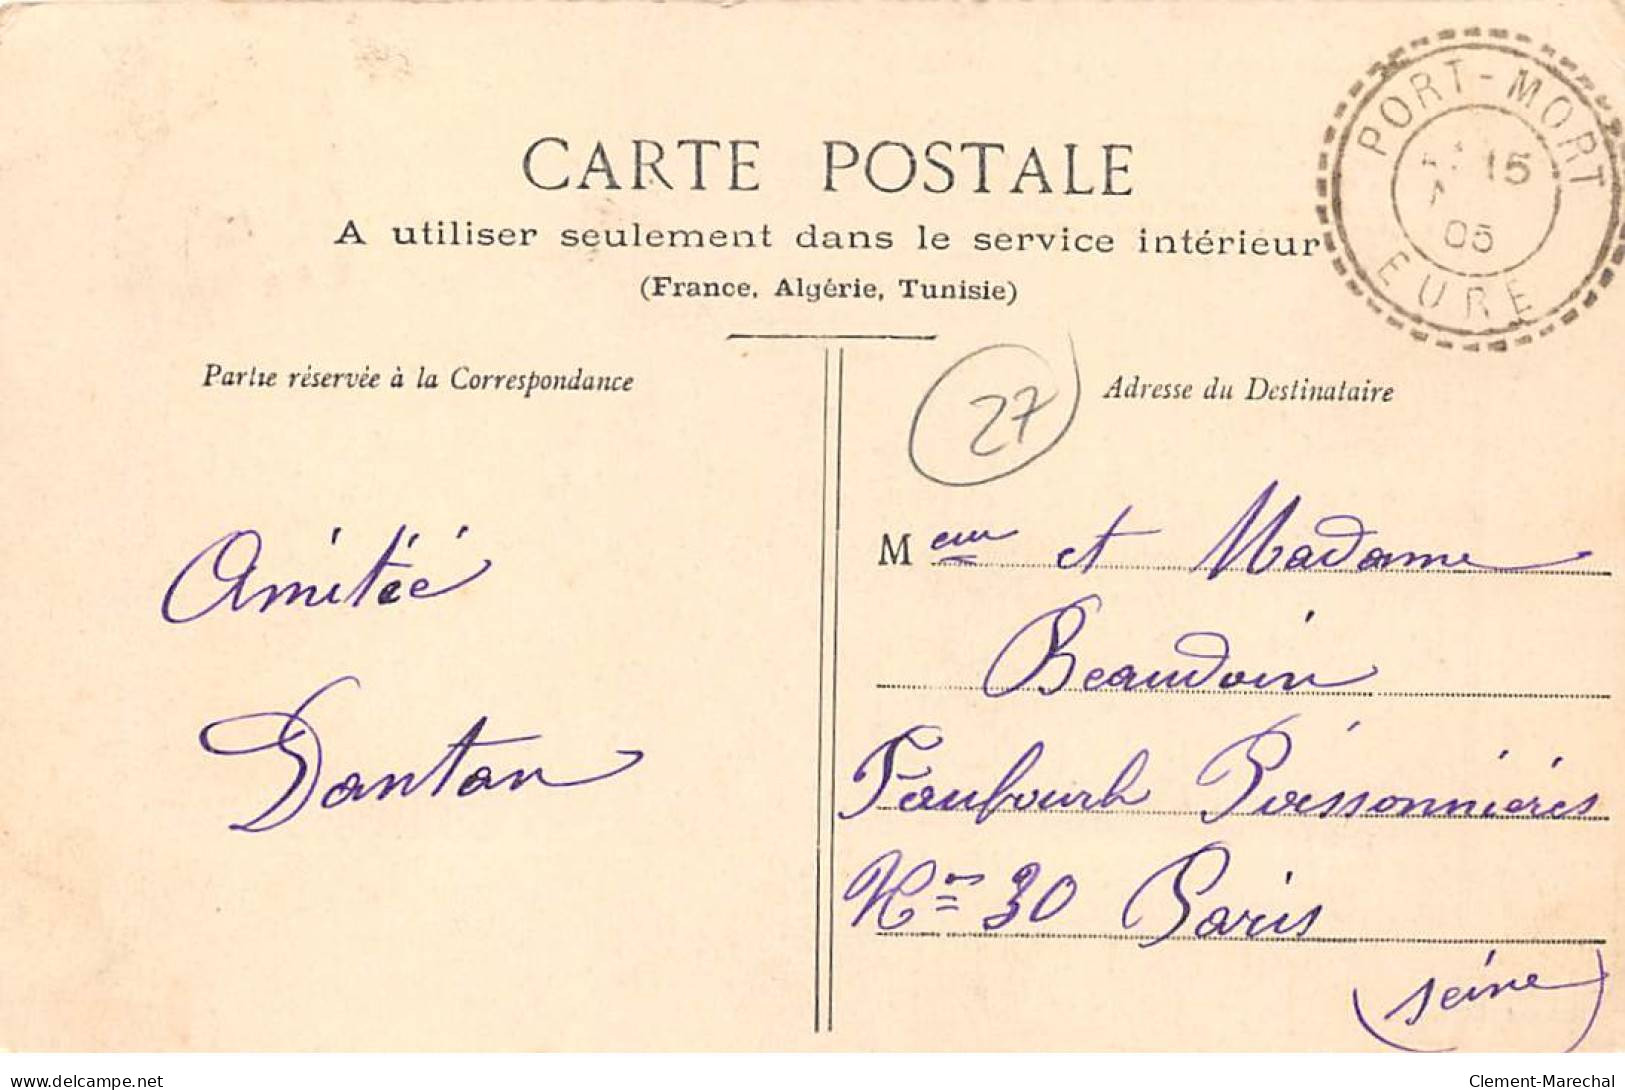 CARTE POSTALE
A utiliser seulement dans le service intérieur
(France, Algérie, Tunisie)
PORT-MORT
15
05
EURE
Partie réservée à la Correspondance
Amitéé
Dantan
27
Adresse du Destinataire
Meur et Madame
Beaudoin
Faubourh Poissonniérés
Nos 30 Paris
(seine)
www.delcampe.net
Clement-Marechal